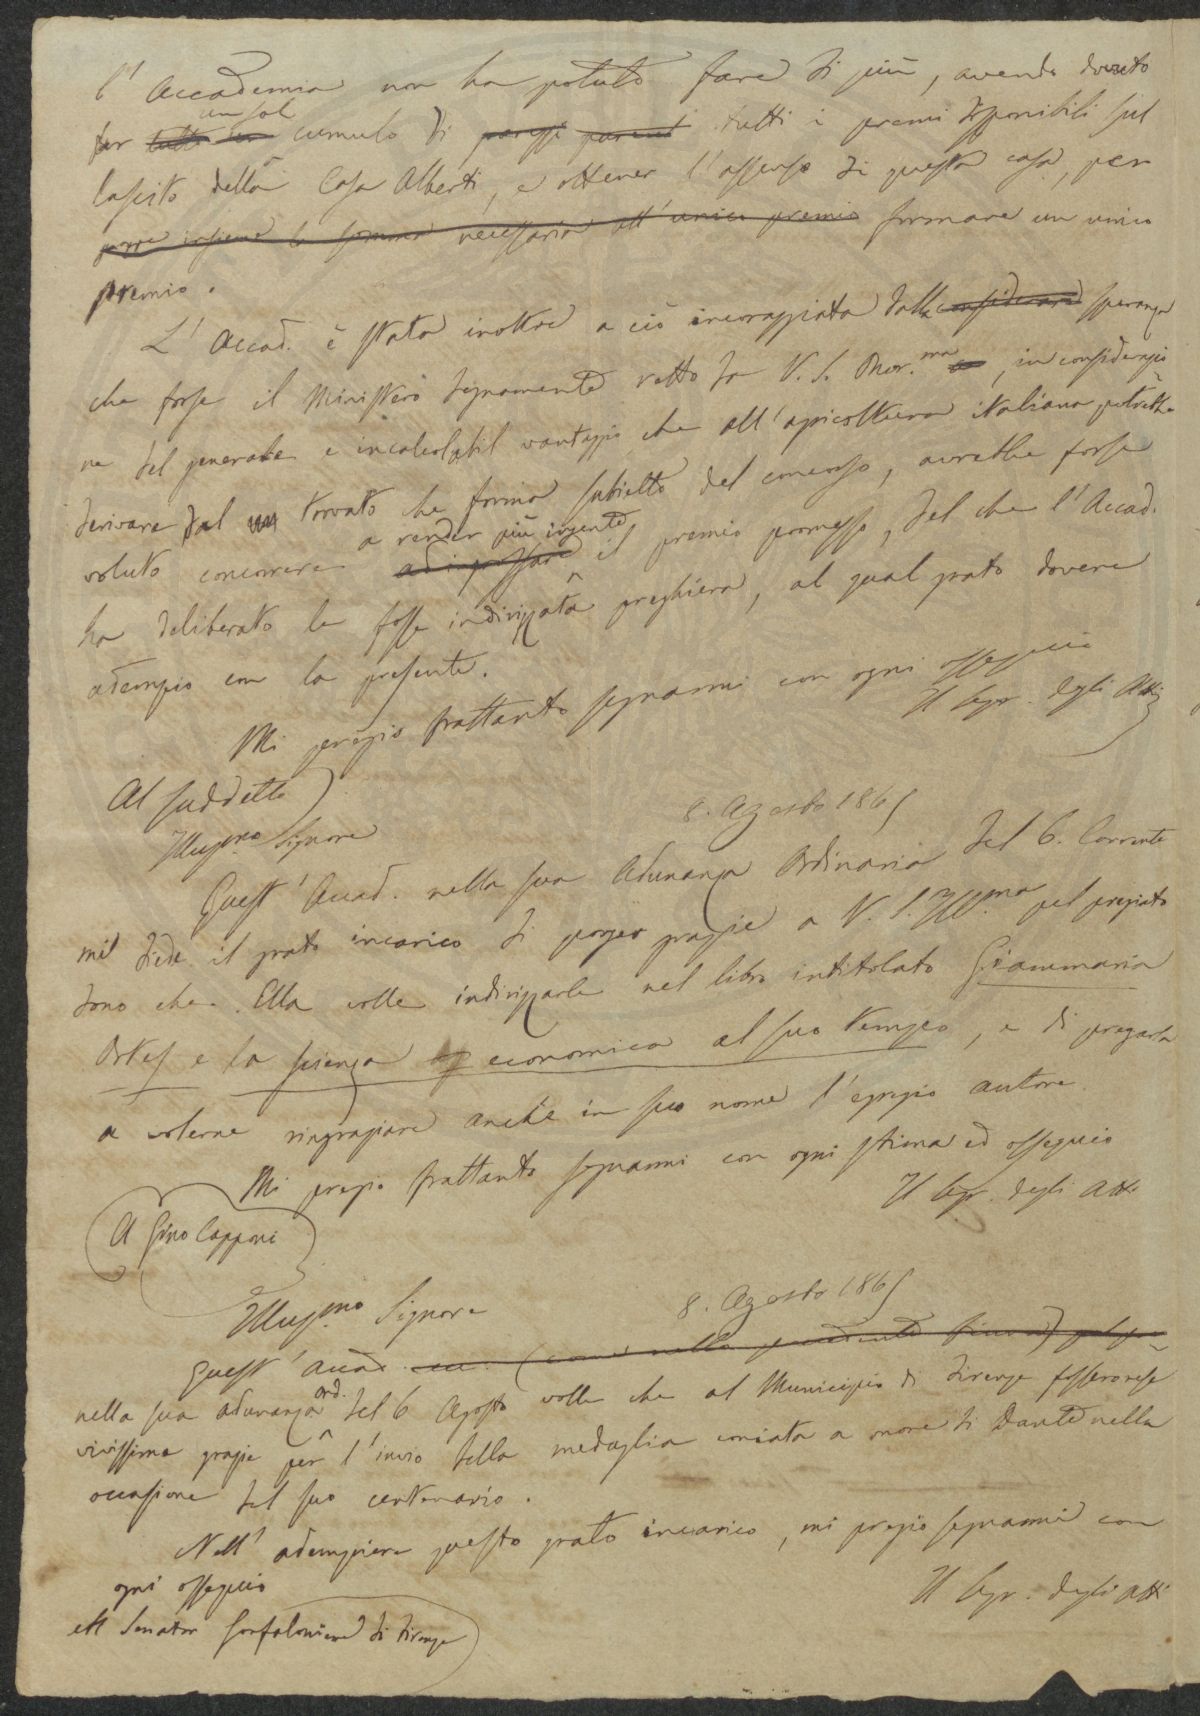 l'Accademia non ha potuto fare di più, avendo dovuto
far tutto un un sol cumulo di tutti i premi disponibili sul
lascito della Casa Alberti, e ottener l'assenso di questa casa, per
porre insieme la somma necessaria all'unico premio formare un unico
premio.
L'Accad. è stata inoltre a ciò incoraggiata dalla considerare speranza
che forse il Ministero degnamente retto da V. S. Onor.ma, in considerazio
ne del generale e incalcolabil vantaggio che all'agricoltura italiana potrebbe
derivare dal trovato che forma subietto del concorso, avrebbe forse
voluto concorrere ad ingrossare a render più ingente il premio promesso, del che l'Accad.
ha deliberato le fosse indirizzata preghiera, al qual grato dovere
adempio con la presente.
Mi pregio frattanto segnarmi con ogni ossequio
Il Segr. degli Atti
Al suddetto
8. Agosto 1865
Illus.mo Signore
Quest'Accad. nella sua Adunanza Ordinaria del 6. Corrente
mi diede il grato incarico di porger grazie a V. S. Ill.ma pel pregiato
dono che Ella volle indirizzarle nel libro intitolato Giammaria
Ortes e la scienza economica al suo tempo, e di pregarla
a volerne ringraziare anche in suo nome l'egregio autore.
Mi pregio frattanto segnarmi con ogni stima ed ossequio
Il Segr. degli Atti
A Gino Capponi
8. Agosto 1865
Illus.mo Signore
Quest'Accad. ec. (come nella precedente sino a)
nella sua adunanza ord. del 6 Agosto volle che al Municipio di Firenze fosser rese
vivissime grazie per l'invio della medaglia coniata a onore di Dante nella
occasione del suo centenario.
Nell'adempiere questo grato incarico, mi pregio segnarmi con
ogni ossequio
Il Segr. degli Atti
Al Senator Gonfaloniere di Firenze